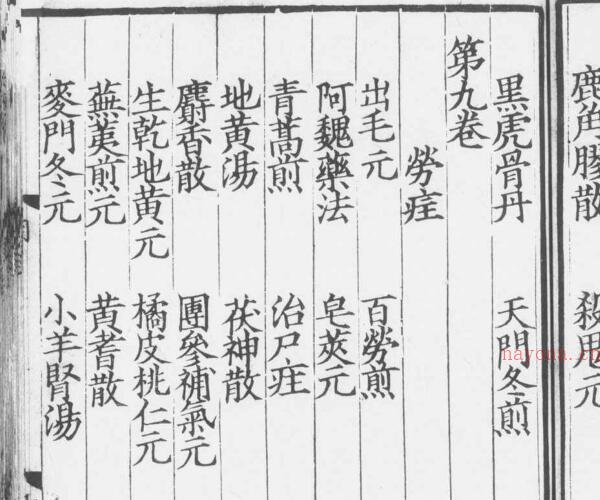 鹿角膠散　殺鬼元
黑虎骨丹　天門冬煎
第九卷
勞疰
出毛元　百勞煎
阿魏藥法　皂莢元
青蒿煎　治尸疰
地黃湯　茯神散
麝香散　團參補氣元
生乾地黃元　橘皮桃仁元
蕪荑煎元　黃耆散
麥門冬元　小羊腎湯
nayona.cn